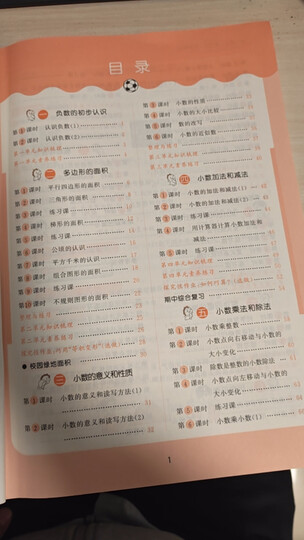 目录
一 负数的初步认识
第1课时 认识负数(1)
第2课时 认识负数(2)
第一单元知识梳理
第一单元素养练习
二 多边形的面积
第1课时 平行四边形的面积
第2课时 三角形的面积
第3课时 练习课
第4课时 梯形的面积
第5课时 练习课
第6课时 公顷的认识
第7课时 平方千米的认识
第8课时 组合图形的面积
第9课时 练习课
第10课时 不规则图形的面积
整理与练习
第二单元知识梳理
第二单元素养练习
● 校园绿地面积
三 小数的意义和性质
第1课时 小数的意义和读写方法(1)
第2课时 小数的意义和读写方法(2)
第3课时 小数的性质
第4课时 小数的大小比较
第5课时 数的改写
第6课时 小数的近似数
整理与练习
第三单元知识梳理
第三单元素养练习
四 小数加法和减法
第1课时 小数的加法和减法(1)
第2课时 小数的加法和减法(2)
第3课时 练习课
第4课时 用计算器计算小数加法和
减法
整理与练习
第四单元知识梳理
第四单元素养练习
期中综合复习
五 小数乘法和除法
第1课时 小数乘整数
第2课时 小数点向右移动与小数的
大小变化
第3课时 除数是整数的小数除法
第4课时 小数点向左移动与小数的
大小变化
第5课时 练习课
第6课时 小数乘小数(1)
1